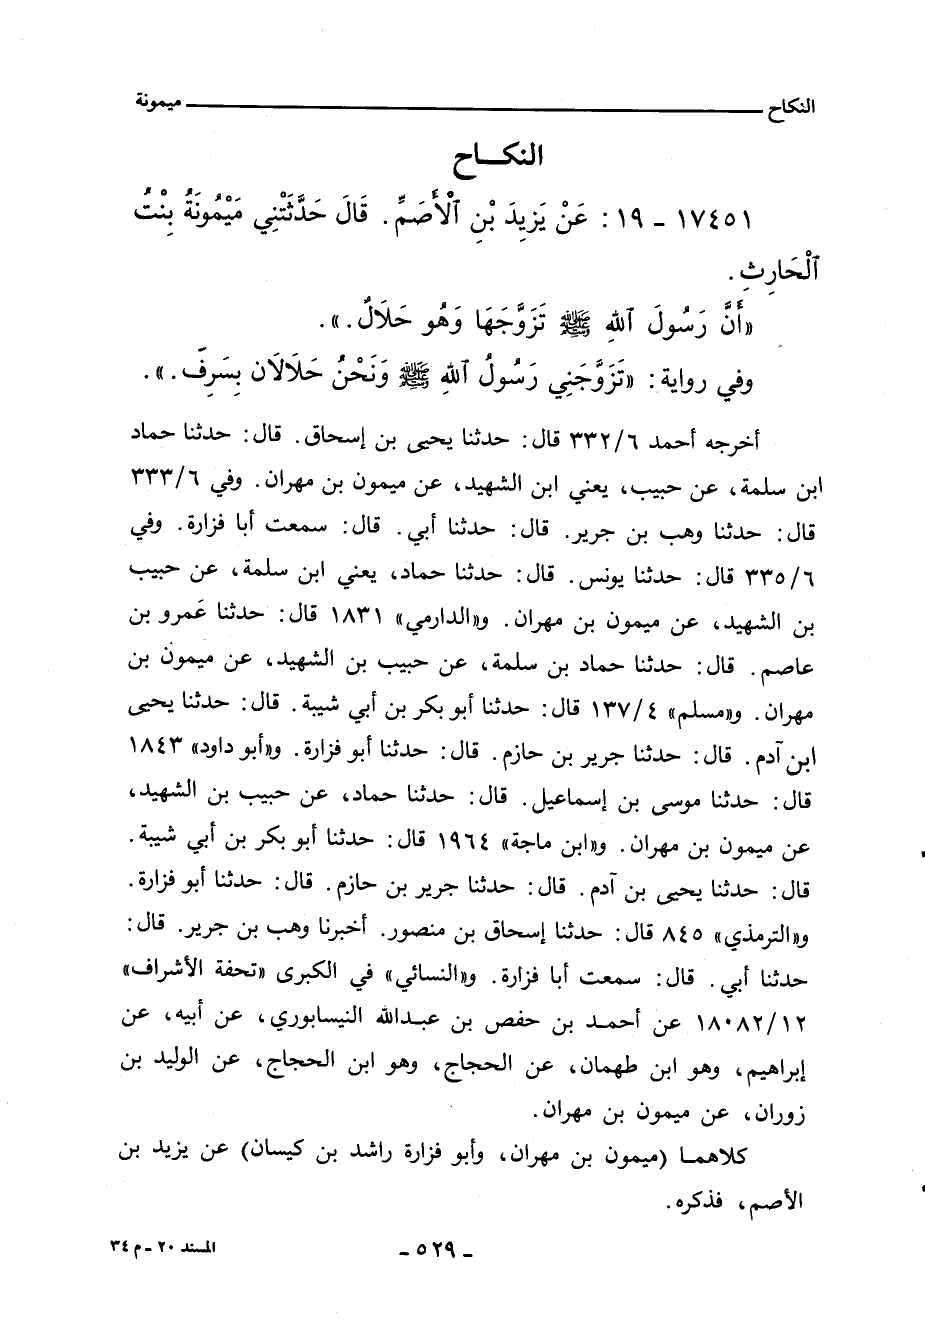 النكاح ميمونة
النكـــاح
١٧٤٥١ - ١٩ : عَنْ يَزِيدَ بْنِ ٱلْأَصَمِّ. قَالَ حَدَّثَتْنِي مَيْمُونَةُ بِنْتُ
ٱلْحَارِثِ.
«أَنَّ رَسُولَ ٱللهِ ﷺ تَزَوَّجَهَا وَهُو حَلَالٌ.».
وفي رواية: «تَزَوَّجَنِي رَسُولُ ٱللهِ ﷺ وَنَحْنُ حَلَالَان بِسَرِفَ.».
أخرجه أحمد ٣٣٢/٦ قال: حدثنا يحيى بن إسحاق. قال: حدثنا حماد
ابن سلمة، عن حبيب، يعني ابن الشهيد، عن ميمون بن مهران. وفي ٣٣٣/٦
قال: حدثنا وهب بن جرير. قال: حدثنا أبي. قال: سمعت أبا فزارة. وفي
٣٣٥/٦ قال: حدثنا يونس. قال: حدثنا حماد، يعني ابن سلمة، عن حبيب
بن الشهيد، عن ميمون بن مهران. و«الدارمي» ١٨٣١ قال: حدثنا عَمرو بن
عاصم. قال: حدثنا حماد بن سلمة، عن حبيب بن الشهيد، عن ميمون بن
مهران. و«مسلم» ١٣٧/٤ قال: حدثنا أبو بكر بن أبي شيبة. قال: حدثنا يحيى
ابن آدم. قال: حدثنا جرير بن حازم. قال: حدثنا أبو فزارة. و«أبو داود» ١٨٤٣
قال: حدثنا موسى بن إسماعيل. قال: حدثنا حماد، عن حبيب بن الشهيد،
عن ميمون بن مهران. و«ابن ماجة» ١٩٦٤ قال: حدثنا أبو بكر بن أبي شيبة.
قال: حدثنا يحيى بن آدم. قال: حدثنا جرير بن حازم. قال: حدثنا أبو فزارة.
و«الترمذي» ٨٤٥ قال: حدثنا إسحاق بن منصور. أخبرنا وهب بن جرير. قال:
حدثنا أبي. قال: سمعت أبا فزارة. و«النسائي» في الكبرى «تحفة الأشراف»
١٨٠٨٢/١٢ عن أحمد بن حفص بن عبدالله النيسابوري، عن أبيه، عن
إبراهيم، وهو ابن طهمان، عن الحجاج، وهو ابن الحجاج، عن الوليد بن
زوران، عن ميمون بن مهران.
كلاهما (ميمون بن مهران، وأبو فزارة راشد بن كيسان) عن يزيد بن
الأصم، فذكره.
- ٥٢٩ - المسند ٢٠ - م ٣٤